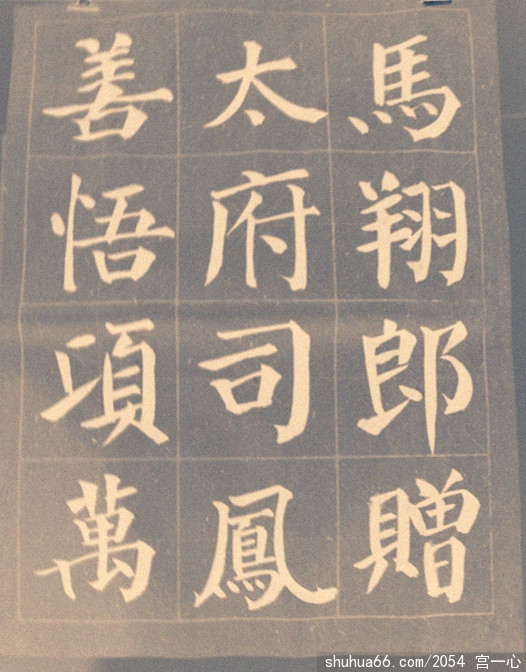 馬翔郎贈
太府司鳳
善悟項萬
shuhua66.com/2054 宫一心